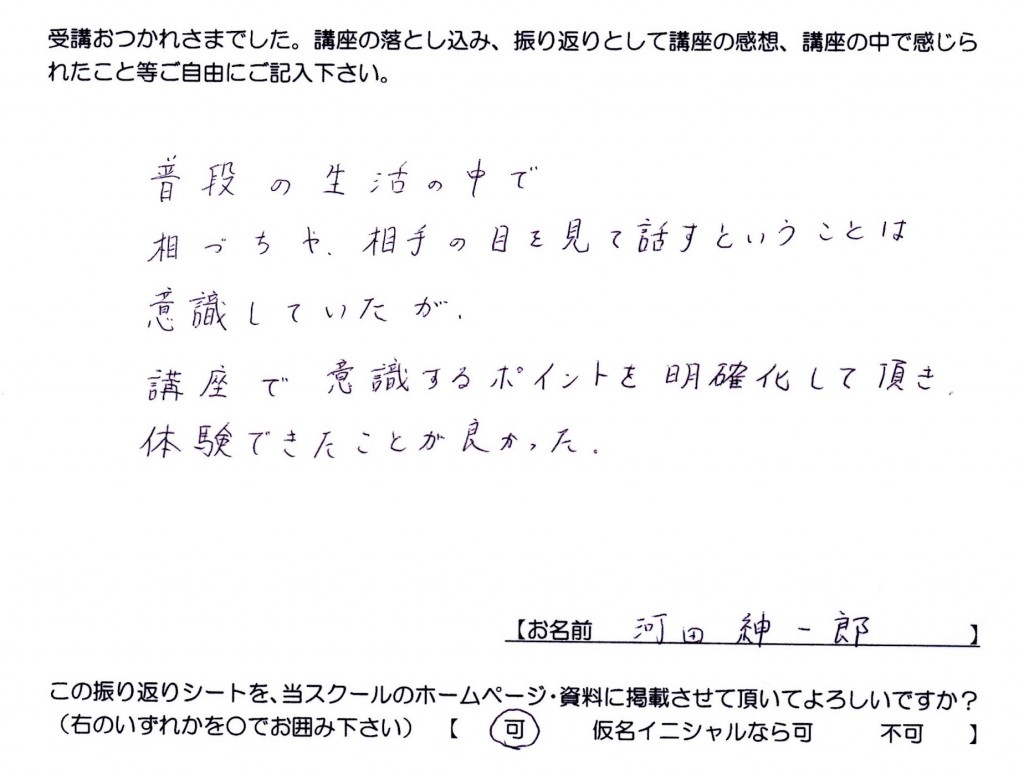 受講おつかれさまでした。講座の落とし込み、振り返りとして講座の感想、講座の中で感じら
れたこと等ご自由にご記入下さい。
普段の生活の中で
相づちや、相手の目を見て話すということは
意識していたが、
講座で意識するポイントを明確化して頂き、
体験できたことが良かった。
【お名前 河田紳一郎 】
この振り返りシートを、当スクールのホームページ・資料に掲載させて頂いてよろしいですか？
（右のいずれかを〇でお囲み下さい）【 可 仮名イニシャルなら可 不可 】